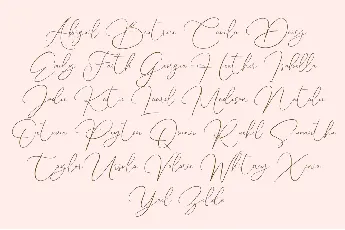 Abigail Beatrice Camila Daisy
Emily Faith Georgia Heather Isabella
Jodie Katie Laurel Madison Natalie
Octavia Payton Quinn Rachel Samantha
Taylor Ursula Valerie Whitney Xenia
Yael Zelda